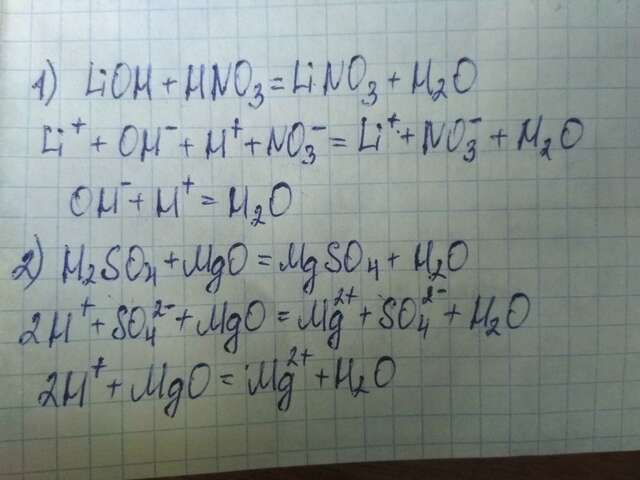 1) LiOH + HNO₃ = LiNO₃ + H₂O
Li⁺ + OH⁻ + H⁺ + NO₃⁻ = Li⁺ + NO₃⁻ + H₂O
OH⁻ + H⁺ = H₂O
2) H₂SO₄ + MgO = MgSO₄ + H₂O
2H⁺ + SO₄²⁻ + MgO = Mg²⁺ + SO₄²⁻ + H₂O
2H⁺ + MgO = Mg²⁺ + H₂O